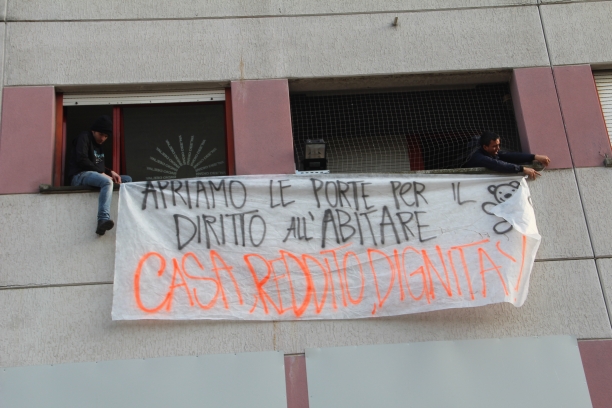 APRIAMO LE PORTE PER IL
DIRITTO ALL'ABITARE
CASA REDDITO DIGNITA'!